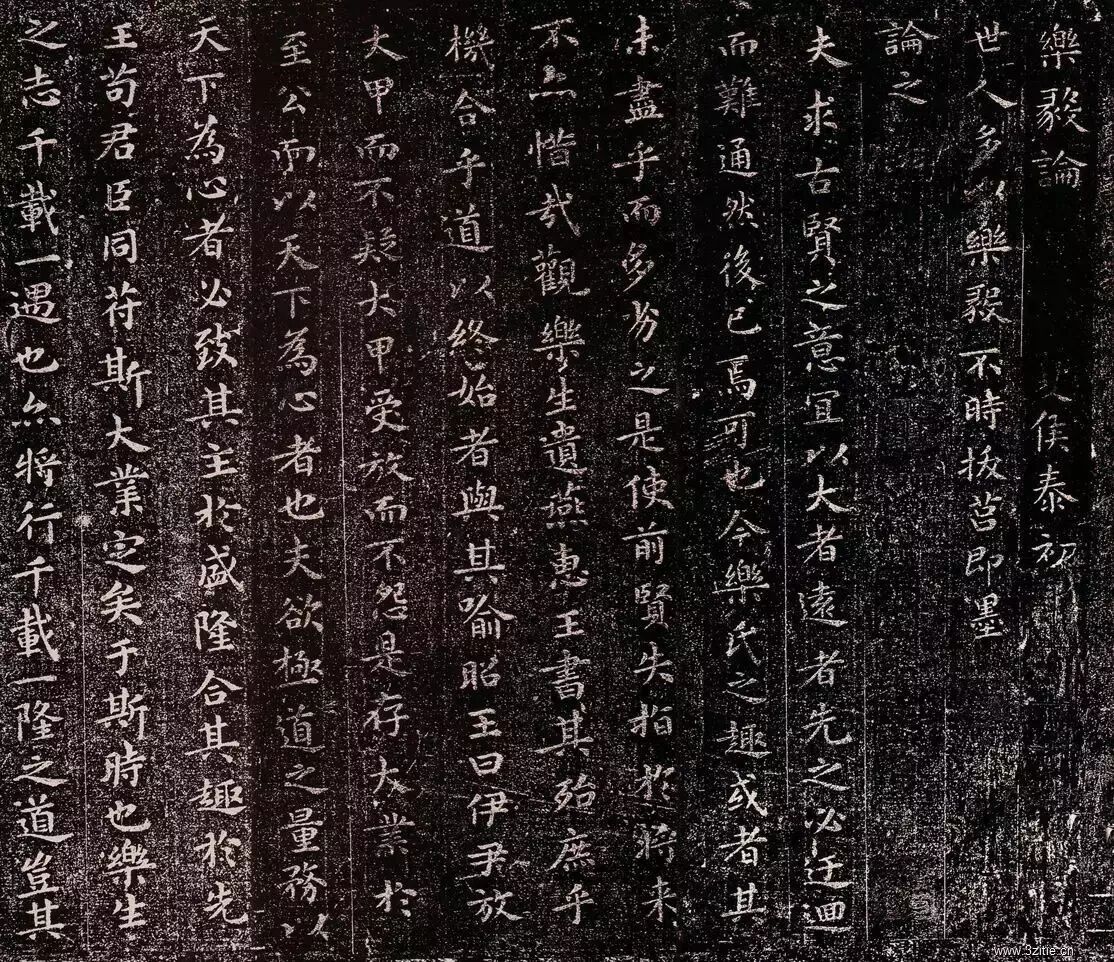 樂毅論 夏侯泰初
世人多以樂毅不時拔莒即墨
論之
夫求古賢之意宜以大者遠者先之必迂迴
而難通然後已焉可也今樂氏之趣或者其
未盡乎而多劣之是使前賢失指於將来
不亦惜哉觀樂生遺燕惠王書其殆庶乎
機合乎道以終始者與其喻昭王曰伊尹放
大甲而不疑大甲受放而不怨是存大業於
至公而以天下為心者也夫欲極道之量務以
天下為心者必致其主於盛隆合其趣於先
王苟君臣同符斯大業定矣于斯時也樂生
之志千載一遇也亦將行千載一隆之道豈其
www.3zitie.cn